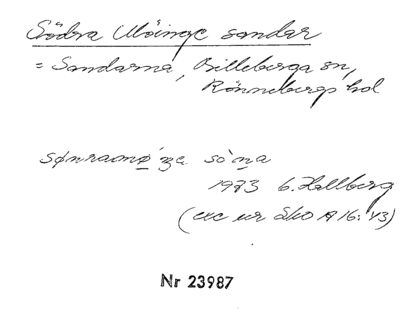 Södra Möinge sandar
= Sandarna, Billeberga sn,
Rönnebergs hd
1973 G. Hallberg
(exc ur Sko A 16:43)
Nr 23987